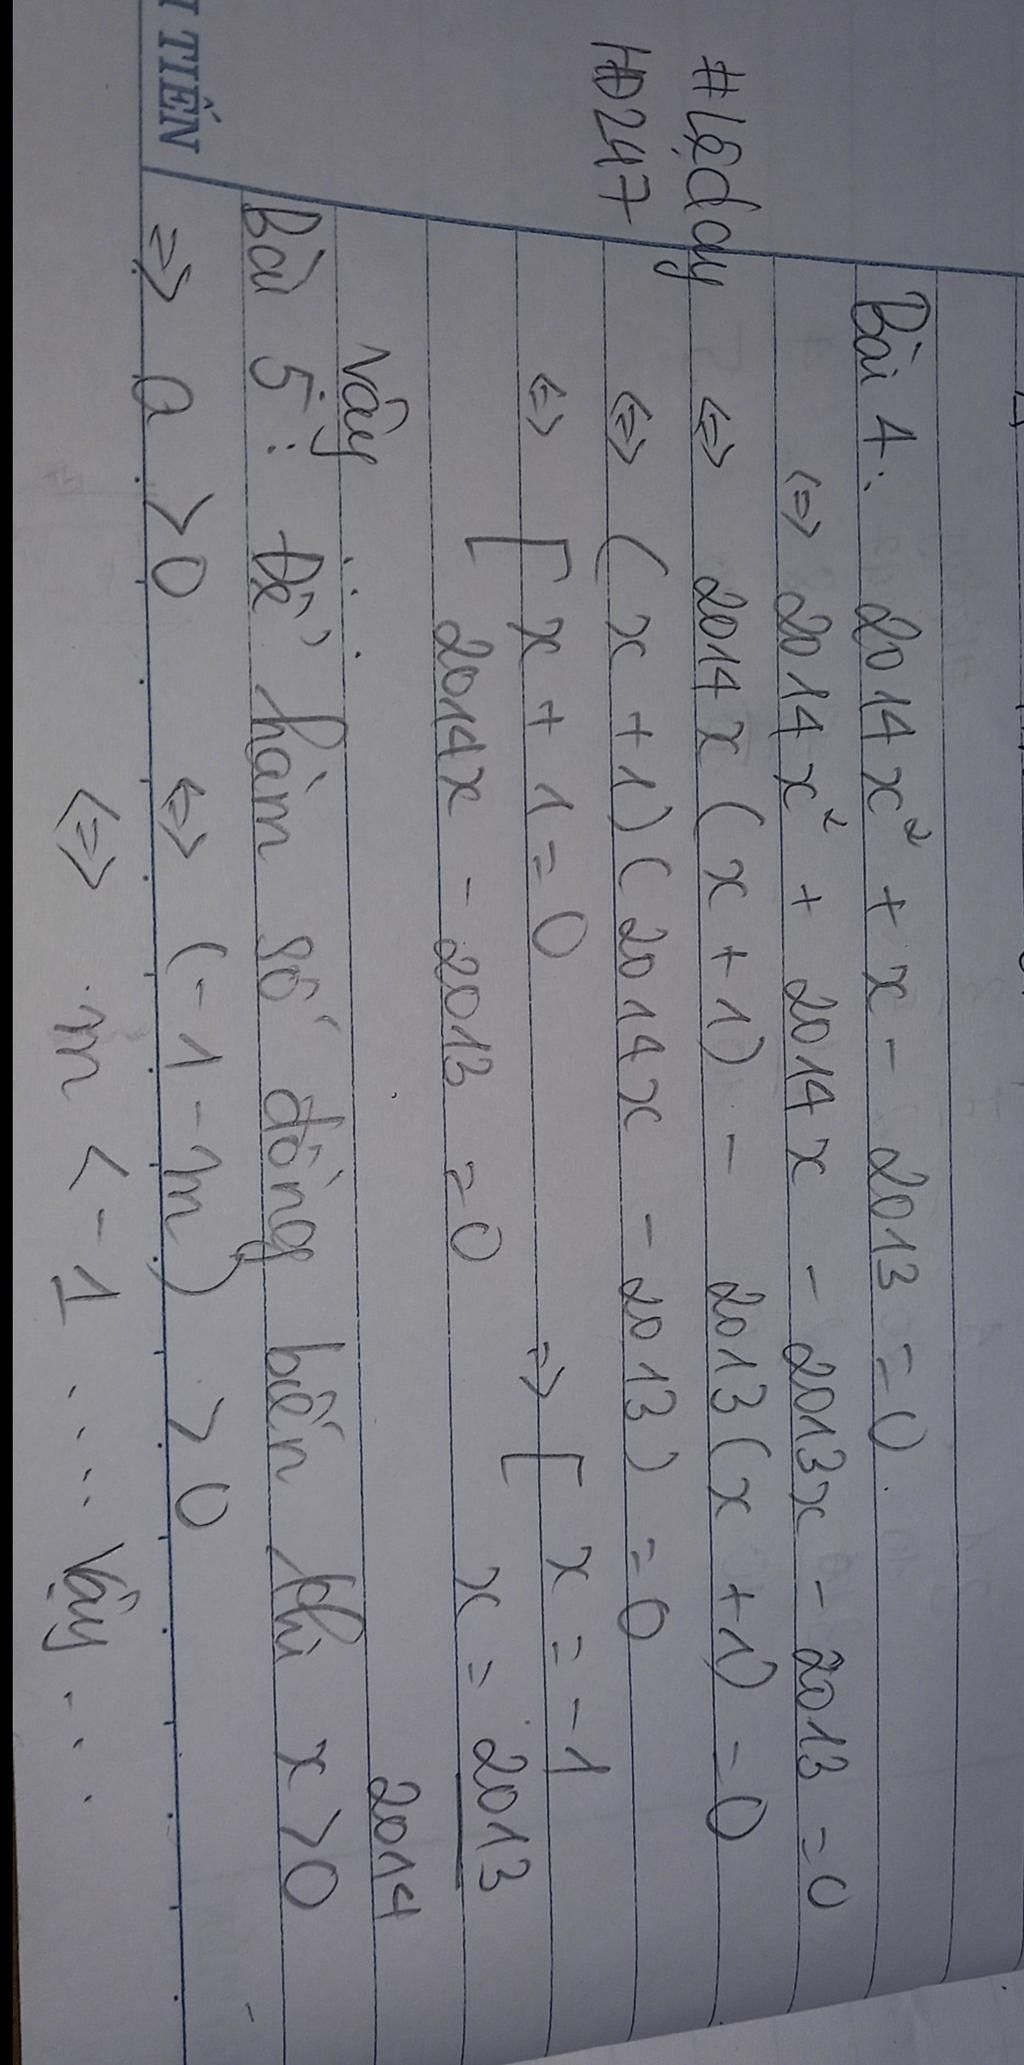 #Lệday
HĐ247
Bài 4: 2014x² + x - 2013 = 0.
<=> 2014x² + 2014x - 2013x - 2013 = 0
<=> 2014x(x+1) - 2013(x+1) = 0
<=> (x+1)(2014x - 2013) = 0
<=> [x+1=0 => [x = -1
2014x - 2013 = 0 x = 2013/2014
Vậy ...
Bài 5: Để hàm số đồng biến thì x>0
=> a >0 <=> (-1-m) >0
<=> m < -1 .... Vậy ...
TIẾN